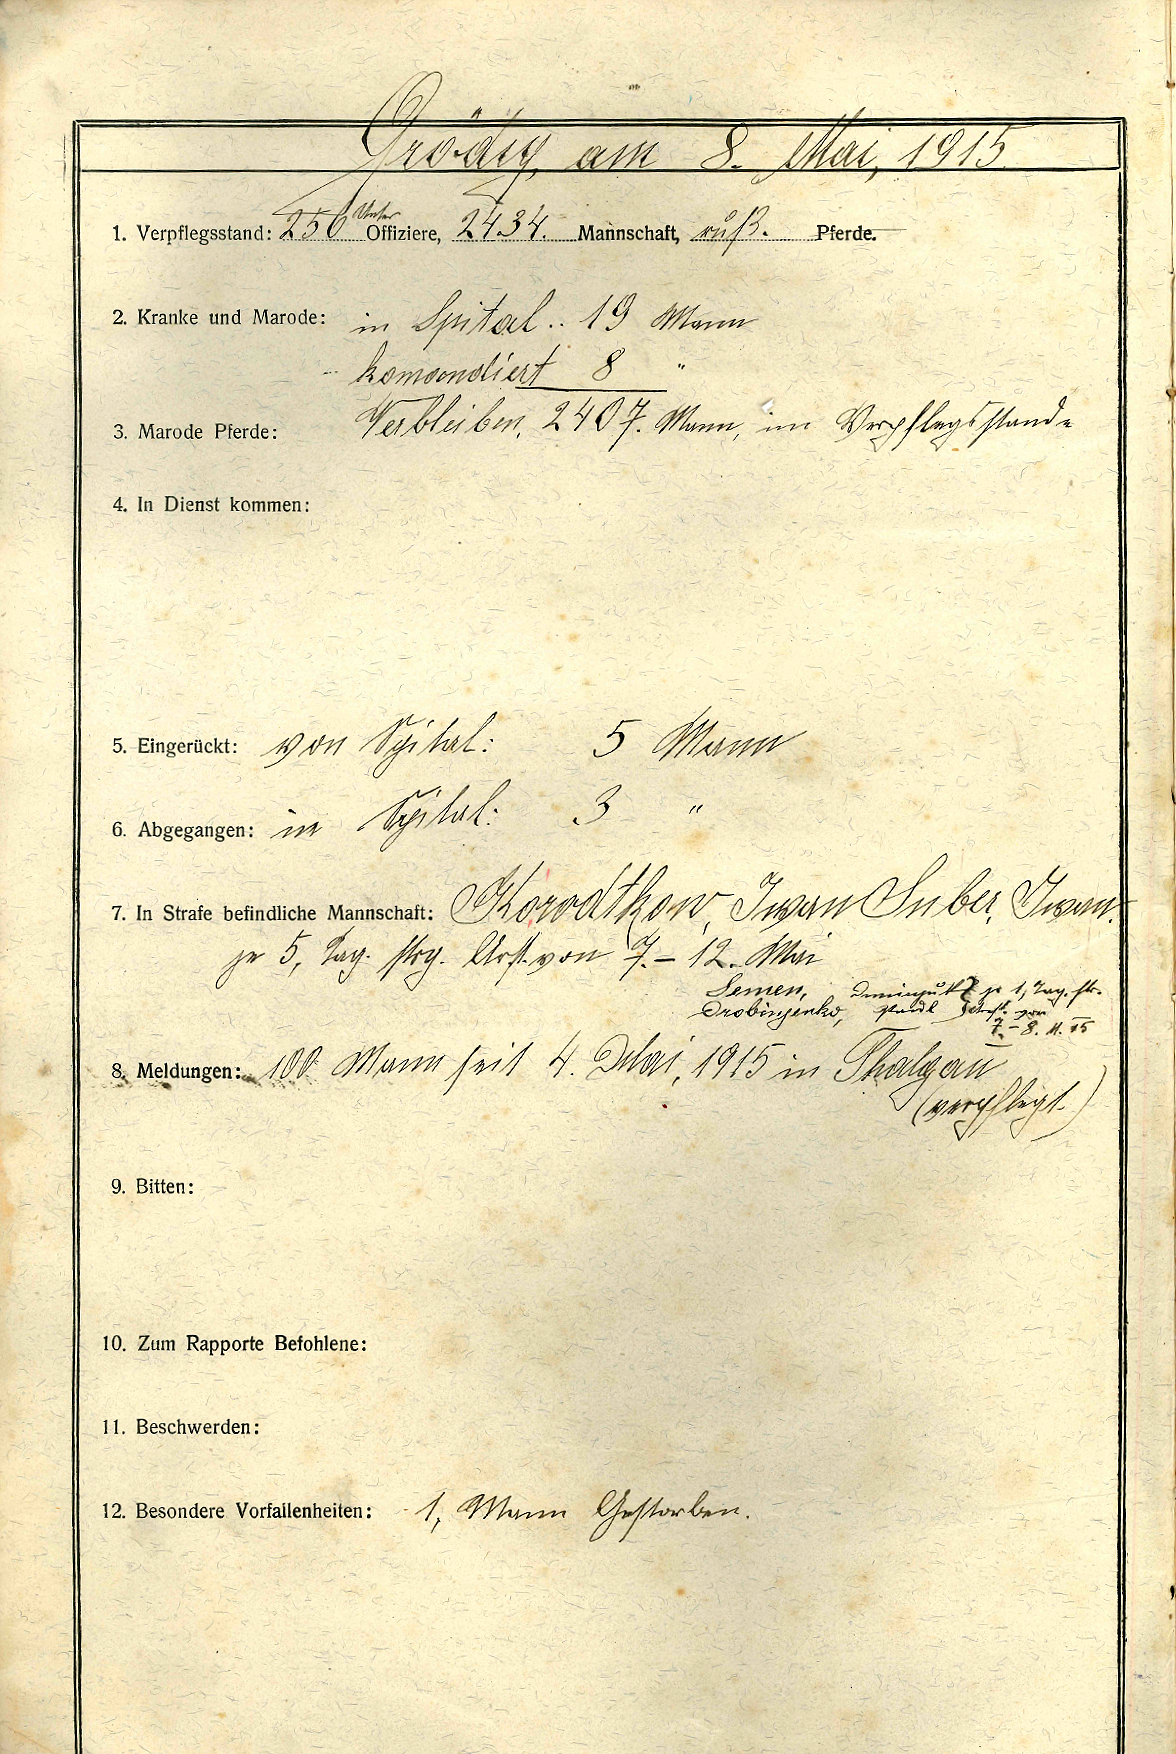 Grödig, am 8. Mai, 1915
1. Verpflegsstand: 256 Unter Offiziere, 2434. Mannschaft, ruß. Pferde.
2. Kranke und Marode: in Spital .. 19 Mann
komandiert 8 "
3. Marode Pferde: Verbleiben, 2407. Mann, im Verpflegsstande
4. In Dienst kommen:
5. Eingerückt: von Spital: 5 Mann
6. Abgegangen: in Spital: 3 "
7. In Strafe befindliche Mannschaft: Korodtkow, Iwan Suber, Iwan.
je 5, Tag. strg. Arst. von 7. – 12. Mai
Semen, je 1, Tag. str.
Drobinjenko, Arst. von
7. – 8. 15
8. Meldungen: 100 Mann seit 4. Mai, 1915 in Thalgau
(verpflegt.)
9. Bitten:
10. Zum Rapporte Befohlene:
11. Beschwerden:
12. Besondere Vorfallenheiten: 1, Mann Gestorben.